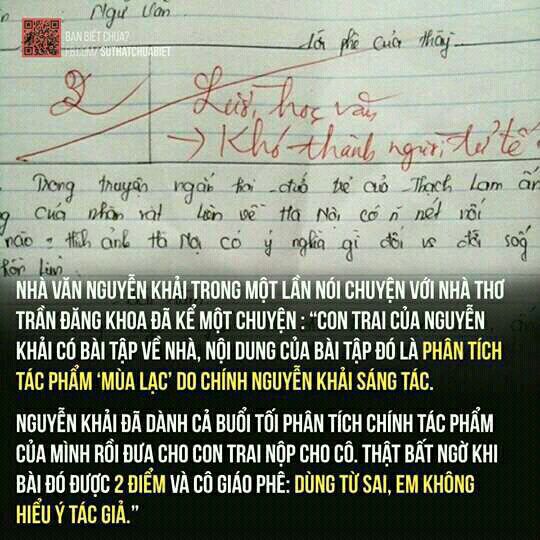 Ngữ Văn
BẠN BIẾT CHƯA?
FB.COM/ SUTHATCHUABIET
Lời phê của thầy
2
Lười học văn
→ Khó thành người tử tế
Trong truyện ngắn Hai đứa trẻ của Thạch Lam ấn
của nhân vật Liên về Hà Nội, có n nét nổi
nào = hình ảnh Hà Nội có ý nghĩa gì đối vs đời sống
Liên
NHÀ VĂN NGUYỄN KHẢI TRONG MỘT LẦN NÓI CHUYỆN VỚI NHÀ THƠ
TRẦN ĐĂNG KHOA ĐÃ KỂ MỘT CHUYỆN : “CON TRAI CỦA NGUYỄN
KHẢI CÓ BÀI TẬP VỀ NHÀ, NỘI DUNG CỦA BÀI TẬP ĐÓ LÀ PHÂN TÍCH
TÁC PHẨM ‘MÙA LẠC’ DO CHÍNH NGUYỄN KHẢI SÁNG TÁC.
NGUYỄN KHẢI ĐÃ DÀNH CẢ BUỔI TỐI PHÂN TÍCH CHÍNH TÁC PHẨM
CỦA MÌNH RỒI ĐƯA CHO CON TRAI NỘP CHO CÔ. THẬT BẤT NGỜ KHI
BÀI ĐÓ ĐƯỢC 2 ĐIỂM VÀ CÔ GIÁO PHÊ: DÙNG TỪ SAI, EM KHÔNG
HIỂU Ý TÁC GIẢ.”